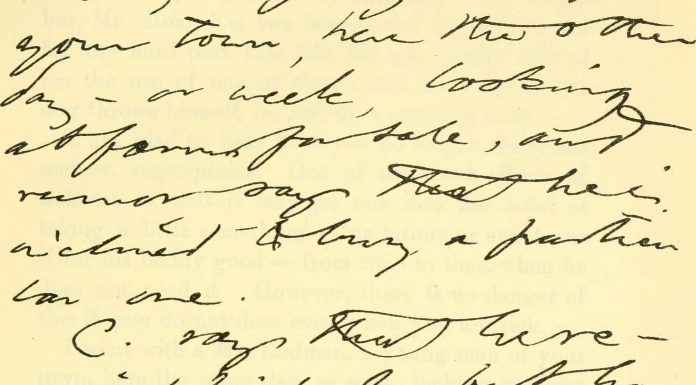 your town, here the other
day or week, looking
at farms for sale, and
rumor says that he is
inclined to buy a particu
lar one.
C. says that here-